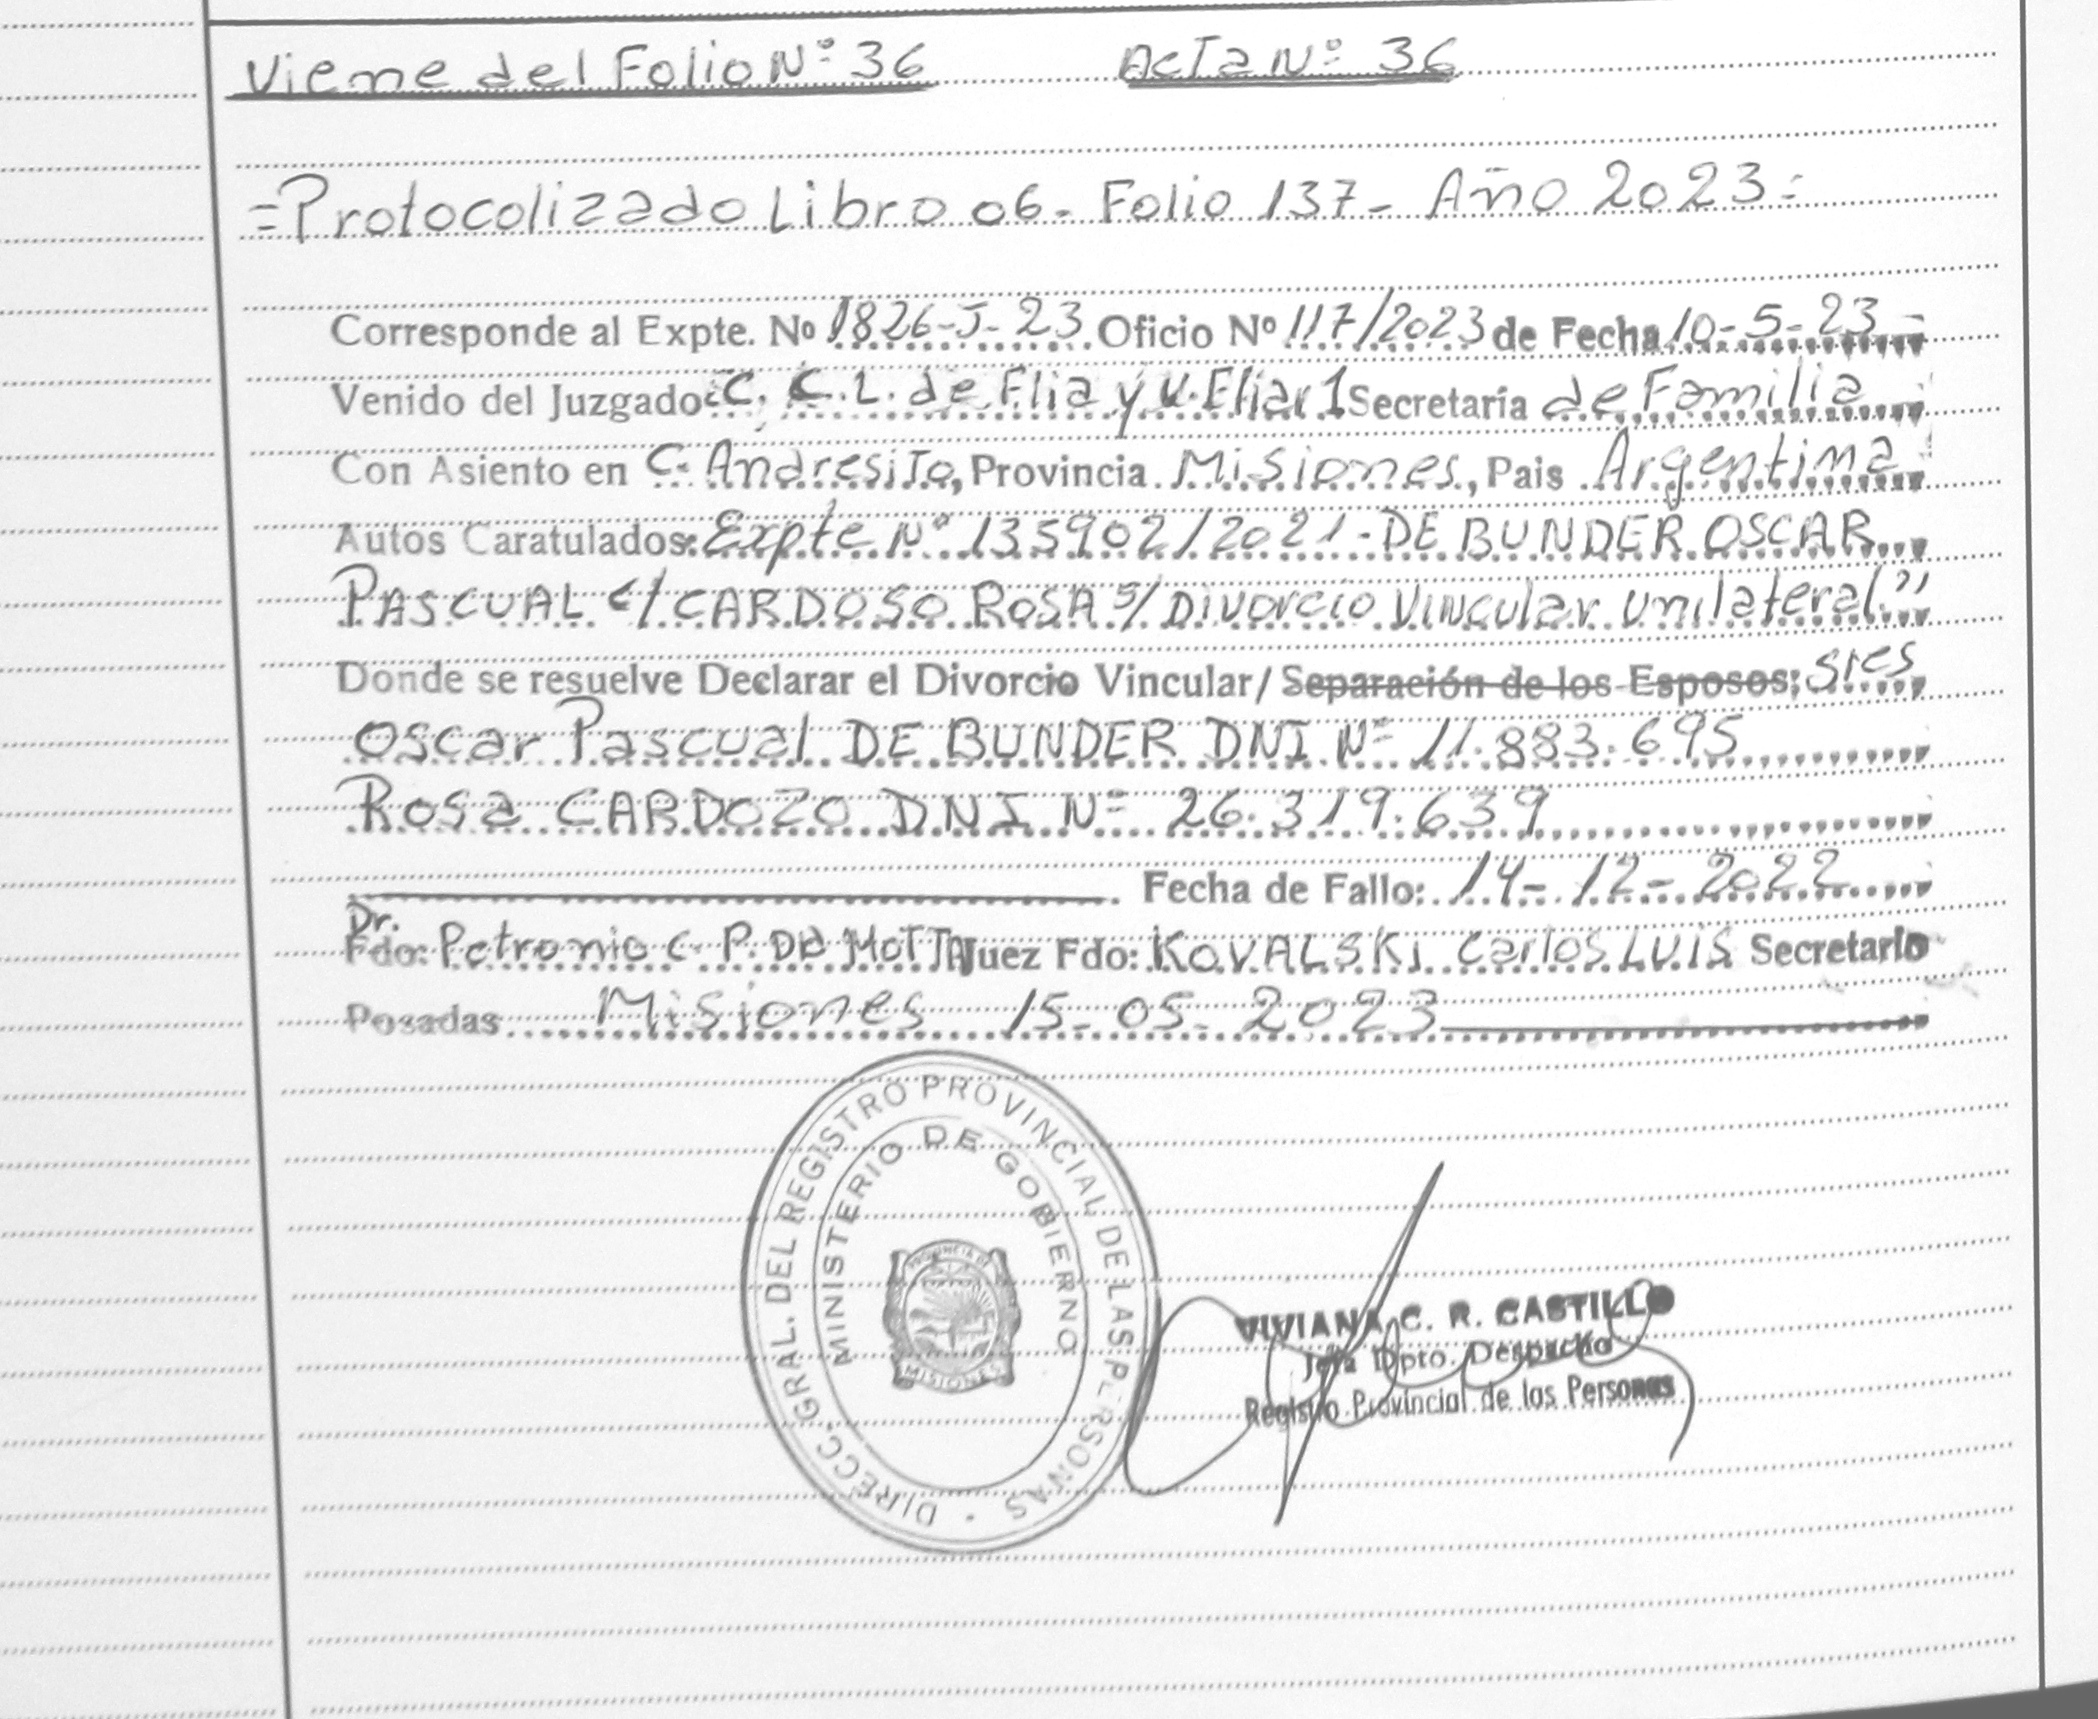 Viene del Folio Nº 36 Acta Nº 36
=Protocolizado Libro 06- Folio 137- Año 2023=
Corresponde al Expte. Nº 1826-J-23 Oficio Nº 117/2023 de Fecha 10-5-23-
Venido del Juzgado: C. C.L. de Flia y V. Fliar 1 Secretaria de Familia
Con Asiento en C. Andresito, Provincia Misiones, Pais Argentina
Autos Caratulados: Expte Nº 135902/2021-DE BUNDER OSCAR
PASCUAL c/ CARDOSO ROSA s/ Divorcio Vincular Unilateral"
Donde se resuelve Declarar el Divorcio Vincular/ Separación de los Esposos; sres
Oscar Pascual DE BUNDER DNI Nº 11.883.695
Rosa CARDOZO DNI Nº 26.319.639
Fecha de Fallo: 14-12-2022
Dr.
Fdo: Petronio C. P. De MOTTA Juez Fdo: KOVALSKI Carlos LUIS Secretario
Posadas Misiones 15-05-2023
DIRECC. GRAL. DEL REGISTRO PROVINCIAL DE LAS PERSONAS
MINISTERIO DE GOBIERNO
PROVINCIA DE
MISIONES
VIVIANA C. R. CASTILLO
Jefa Dpto. Despacho
Registro Provincial de las Personas